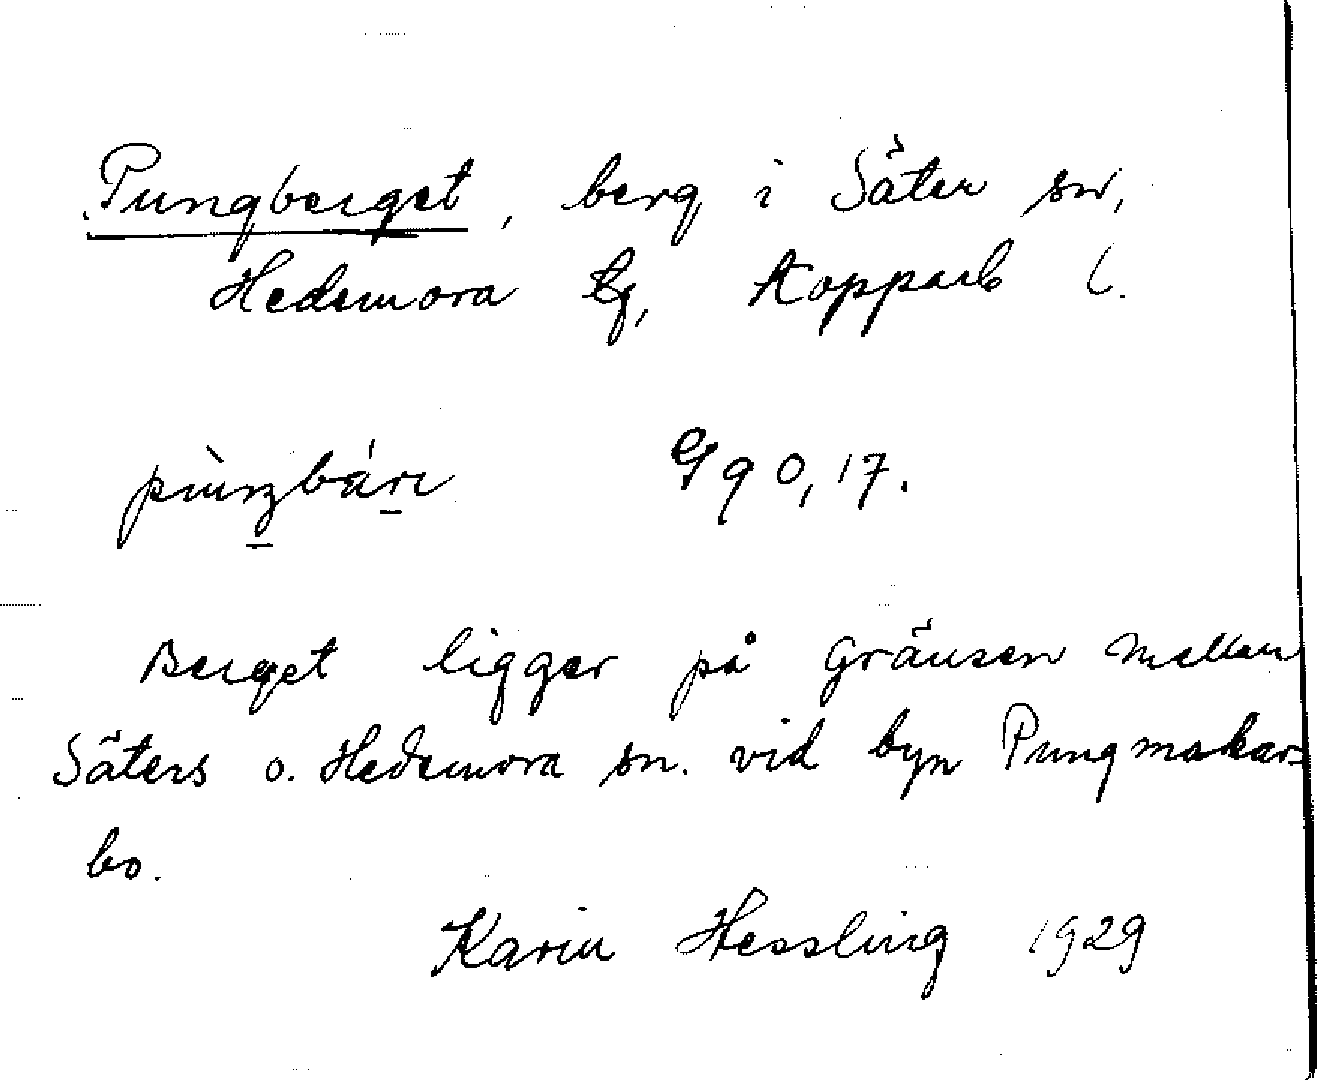 Pungberget, berg i Säter sn,
Hedemora tg, Kopparb l.
pùŋbárı G90,17.
Berget ligger på gränsen mellan
Säters o. Hedemora sn. vid byn Pungmakar-
bo.
Karin Hessling 1929